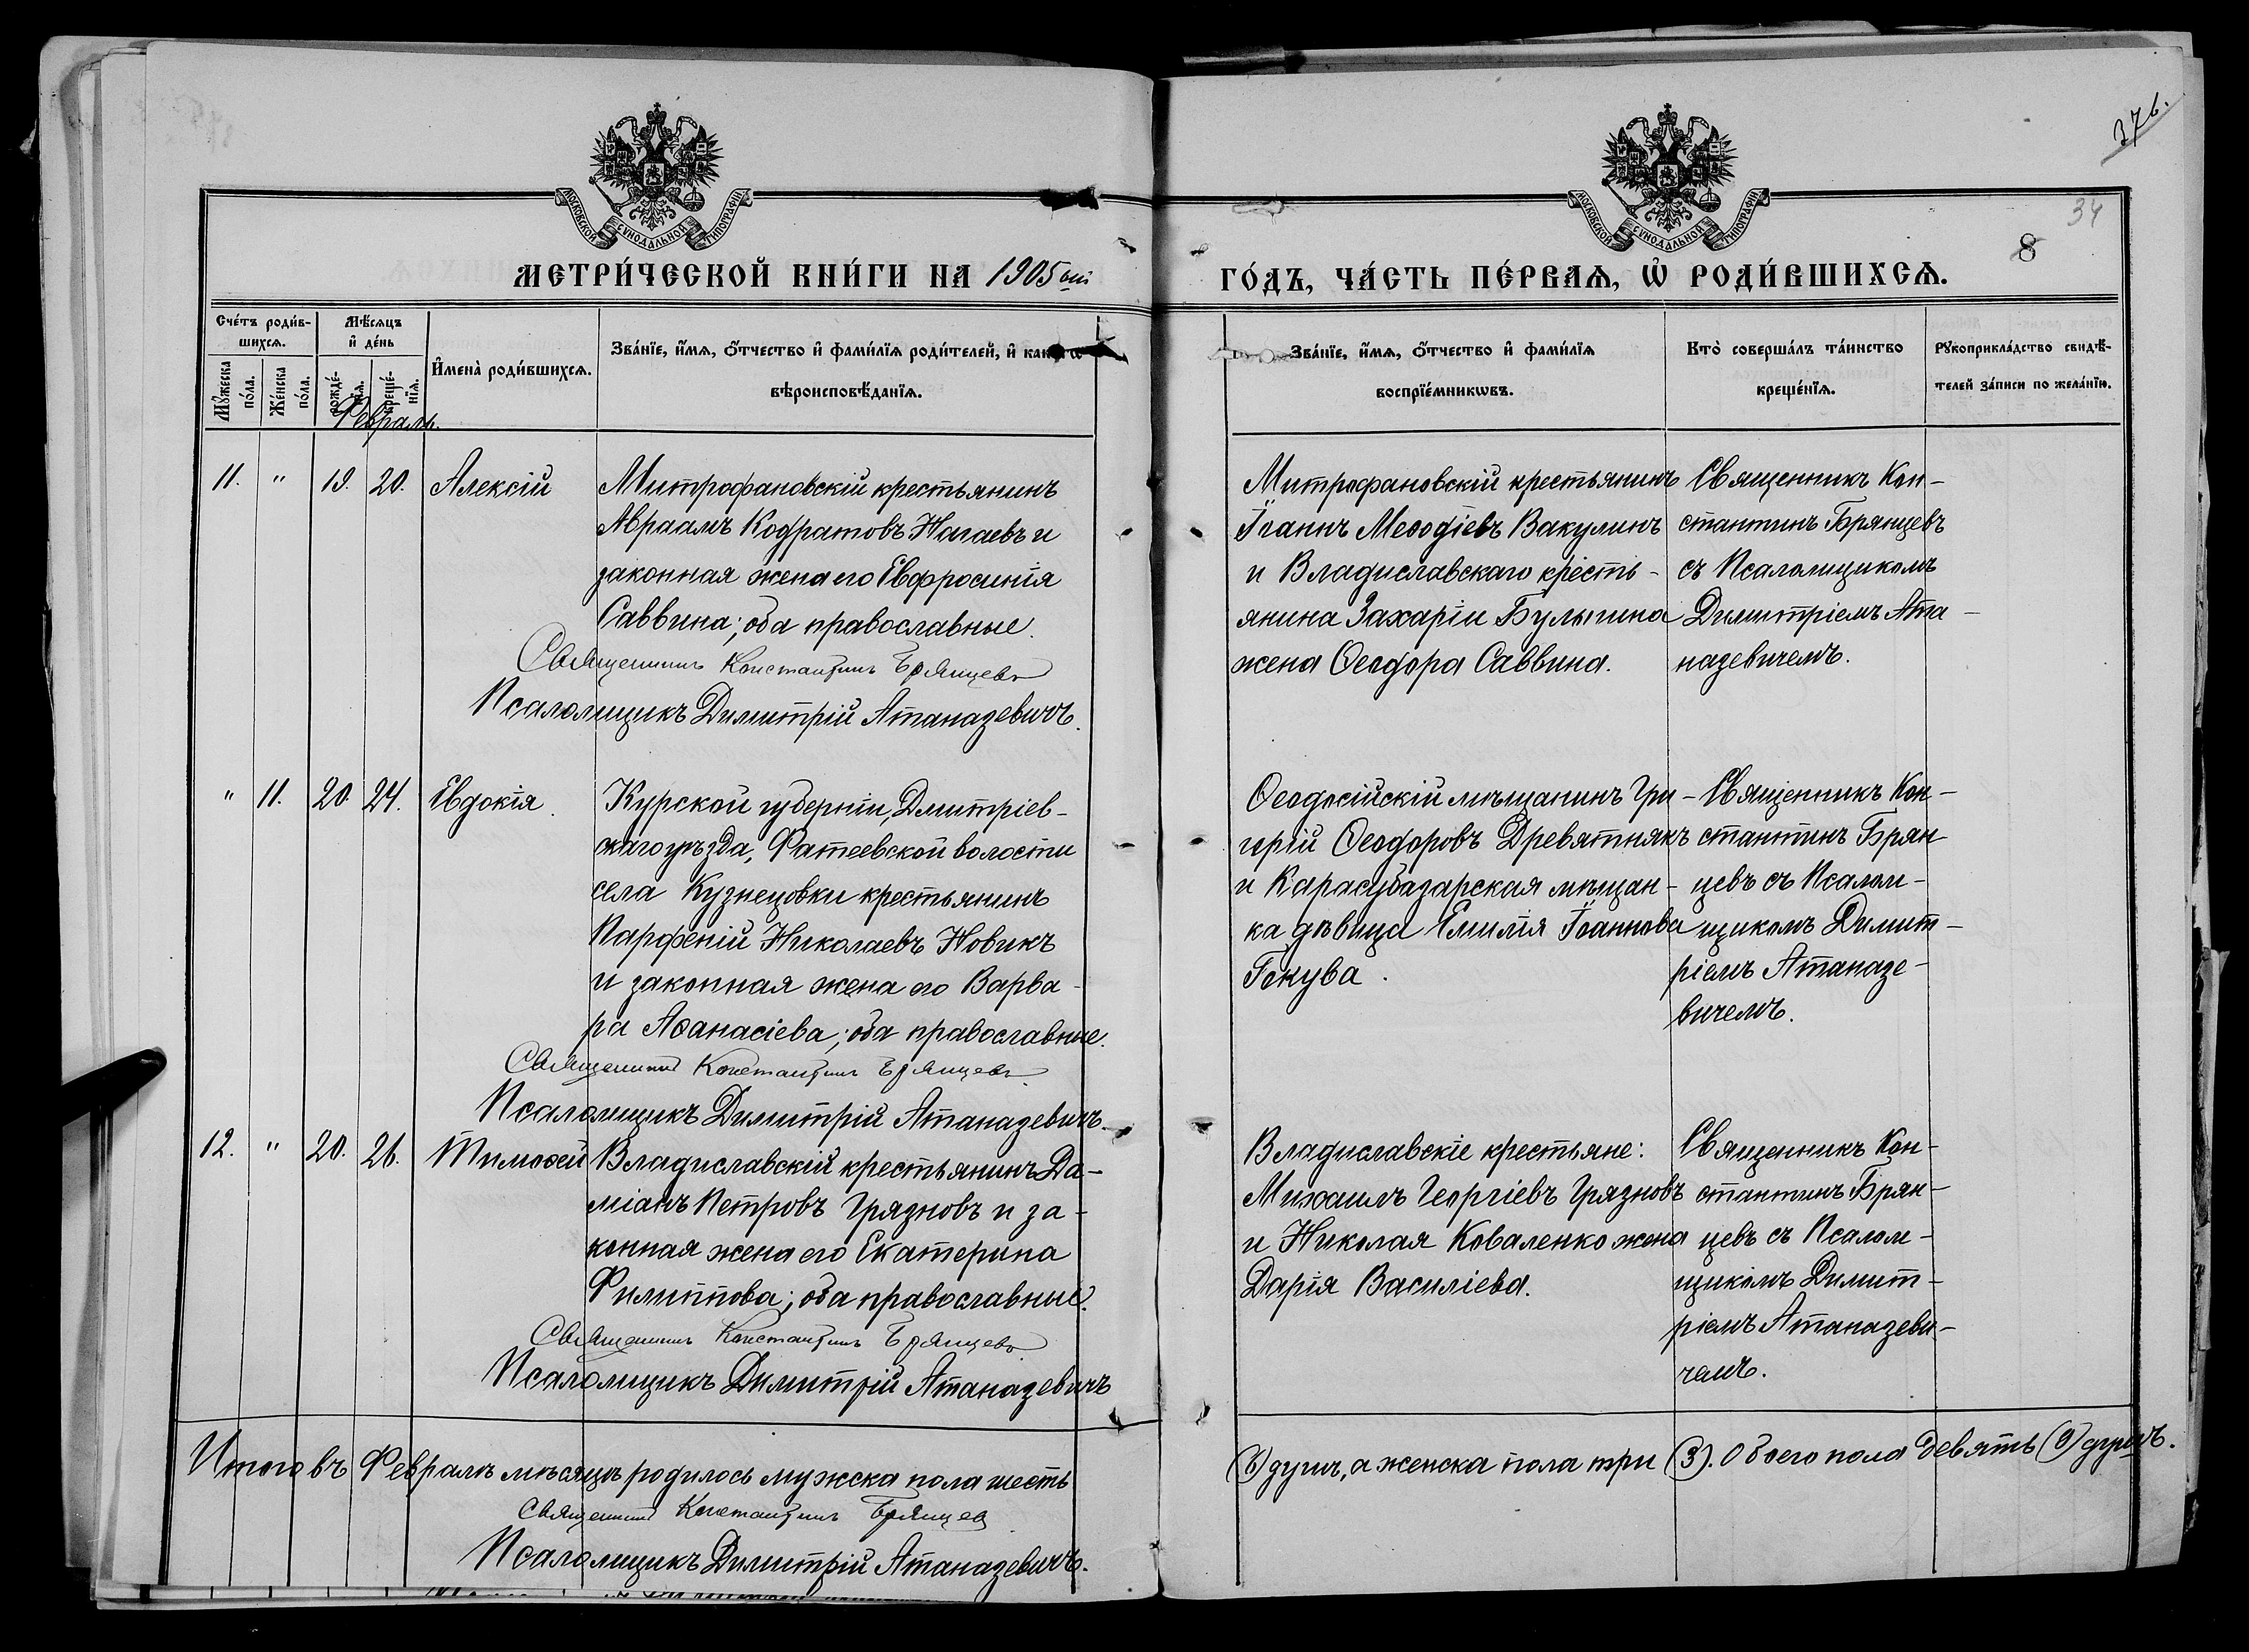 376.
34
8
МОСКОВСКОЙ СѴНОДАЛЬНОЙ ТИПОГРАФІИ
МОСКОВСКОЙ СѴНОДАЛЬНОЙ ТИПОГРАФІИ
МЕТРИ́ЧЕСКОЙ КНИ́ГИ НА 1905 ый
ГО́ДЪ, ЧА́СТЬ ПЕ́РВАѦ, Ѡ҆ РОДИ́ВШИХСѦ.
Сче́тъ роди́в-
шихсѧ.
Мꙋ́жеска по́ла.
Же́нска по́ла.
Мѣ́сѧцъ
и҆ де́нь
рожде́нїѧ.
креще́нїѧ.
И҆мена̀ роди́вшихсѧ.
Зва́нїе, и҆́мѧ, ѻ҆́тчество и҆ фами́лїѧ роди́телей, и҆
вѣроисповѣ́данїѧ.
Зва́нїе, и҆́мѧ, ѻ҆́тчество и҆ фами́лїѧ
воспрїе́мникѡвъ.
Кто̀ соверша́лъ та́инство
креще́нїѧ.
Рꙋкоприкла́дство свидѣ́-
телей за́писи по жела́нїю.
Февраль.
11. " 19. 20. Алексій
Митрофановскій крестьянинъ
Авраамъ Кодратовъ Нагаевъ и
законная жена его Евфросинія
Саввина; оба православные.
Священникъ Константинъ Брянцевъ
Псаломщикъ Димитрій Атаназевичъ.
Митрофановскій крестьянинъ
Іоаннъ Меѳодіевъ Вакулинъ
и Владиславскаго кресть-
янина Захаріи Булыгина
жена Ѳеодора Саввина.
Священникъ Кон-
стантинъ Брянцевъ
съ Псаломщикомъ
Димитріемъ Ата-
назевичемъ.
" 11. 20. 24. Евдокія.
Курской губерніи, Дмитріев-
скаго уѣзда, Фатеевской волости
села Кузнецовки крестьянинъ
Парфеній Николаевъ Новикъ
и законная жена его Варва-
ра Аѳанасіева; оба православные.
Священникъ Константинъ Брянцевъ
Псаломщикъ Димитрій Атаназевичъ.
Ѳеодосійскій мѣщанинъ Гри-
горій Ѳеодоровъ Древятнякъ
и Карасубазарская мѣщан-
ка дѣвица Емилія Іоаннова
Священникъ Кон-
стантинъ Брян-
цевъ съ Псалом-
щикомъ Димит-
ріемъ Атаназе-
вичемъ.
12. " 20. 26. Тимоѳей
Владиславскій крестьянинъ Да-
міанъ Петровъ Грязновъ и за-
конная жена его Екатерина
Филиппова; оба православные.
Священникъ Константинъ Брянцевъ
Псаломщикъ Димитрій Атаназевичъ
Владиславскіе крестьяне:
Михаилъ Георгіевъ Грязновъ
и Николая Коваленко жена
Дарія Василіева.
Священникъ Кон-
стантинъ Брян-
цевъ съ Псалом-
щикомъ Димит-
ріемъ Атаназеви-
чемъ.
Итого въ Февралѣ мѣсяцѣ родилось мужска пола шесть
(6) душъ, а женска пола три (3). Обоего пола девять (9) душъ.
Священникъ Константинъ Брянцев
Псаломщикъ Димитрій Атаназевичъ.